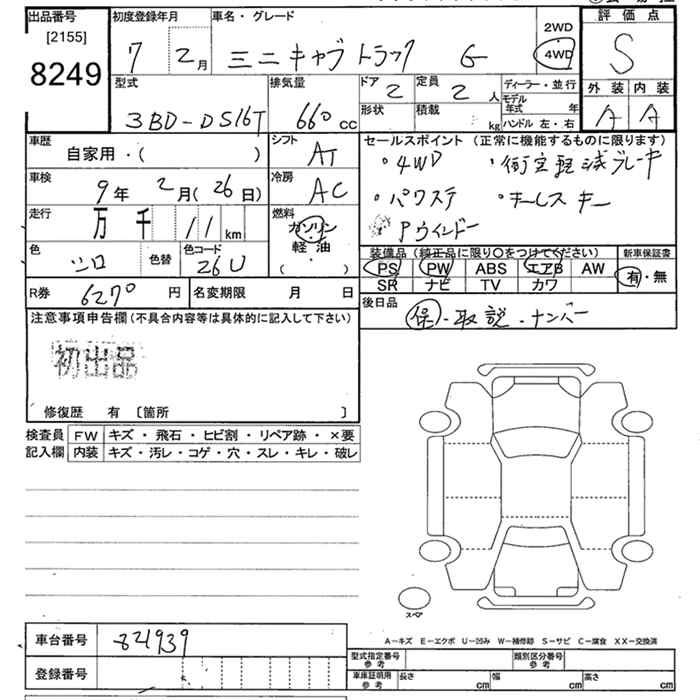 出品番号 初度登録年月 車名・グレード 評価点
[2155] 7年 2月 ミニキャブトラック G 2WD 4WD S
8249
型式 排気量 ドア 定員 ディーラー・並行 外装 内装
3BD-DS16T 660cc 2 2人 モデル年式 年 A A
形状 積載 kg ハンドル 左・右
車歴 シフト セールスポイント(正常に機能するものに限ります)
自家用・( ) AT ・4WD ・衝突軽減ブレーキ
車検 冷房
9年 2月(26日) AC ・パワステ ・キーレスキー
走行 燃料 Pウインドー
万 千 11 km ガソリン
軽・油
・( )
色 色替 色コード 装備品(純正品に限り○をつけてください) 新車保証書
シロ 26U PS PW ABS エアB AW 有・無
SR ナビ TV カワ
R券 6270円 名変期限 月 日 後日品
保・取説・ナンバー
注意事項申告欄(不具合内容等は具体的に記入して下さい)
初出品
修復歴 有 [箇所 ]
検査員 FW キズ・飛石・ヒビ割・リペア跡・×要
記入欄 内装 キズ・汚レ・コゲ・穴・スレ・キレ・破レ
スペア
A-キズ E-エクボ U-凹み W-補修跡 S-サビ C-腐食 XX-交換済
車台番号 -821939
型式指定番号 参考 類別区分番号 参考
登録番号 車庫証明用 参考 長さ cm 幅 cm 高さ cm